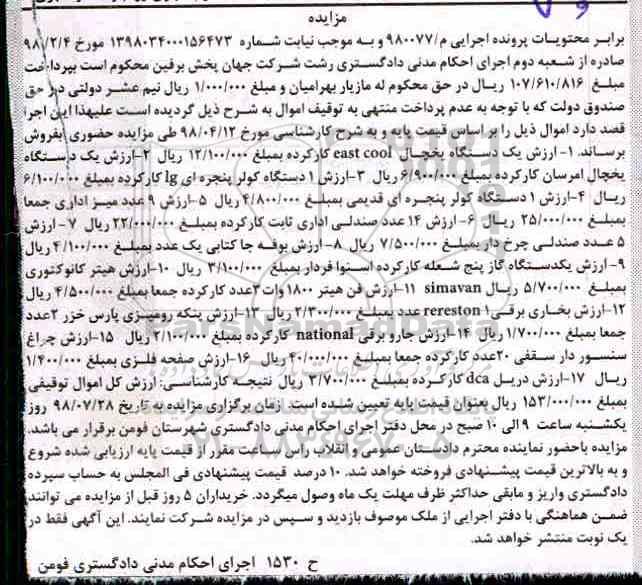 مزایده
برابر محتویات پرونده اجرایی م/۹۸۰۰۷۷ و به موجب نیابت شماره ۱۳۹۸۰۳۴۰۰۰۱۵۶۴۷۳ مورخ ۹۸/۲/۴
صادره از شعبه دوم اجرای احکام مدنی دادگستری رشت شرکت جهان پخش برفین محکوم است بپرداخت
مبلغ ۱۰۷/۶۱۰/۸۱۶ ریال در حق محکوم له مازیار بهرامیان و مبلغ ۱/۰۰۰/۰۰۰ ریال نیم عشر دولتی در حق
صندوق دولت که با توجه به عدم پرداخت منتهی به توقیف اموال به شرح ذیل گردیده است علیهذا این اجرا
قصد دارد اموال ذیل را بر اساس قیمت پایه و به شرح کارشناسی مورخ ۹۸/۰۴/۱۲ طی مزایده حضوری بفروش
برساند. ۱- ارزش یک دستگاه یخچال east cool کارکرده بمبلغ ۱۲/۱۰۰/۰۰۰ ریال ۲-ارزش یک دستگاه
یخچال امرسان کارکرده بمبلغ ۶/۹۰۰/۰۰۰ ریال ۳-ارزش ۱ دستگاه کولر پنجره ای lg کارکرده بمبلغ ۶/۱۰۰/۰۰۰
ریال ۴-ارزش ۱ دستگاه کولر پنجره ای قدیمی بمبلغ ۴/۸۰۰/۰۰۰ ریال ۵-ارزش ۹ عدد میز اداری جمعا
بمبلغ ۲۵/۰۰۰/۰۰۰ ریال ۶- ارزش ۱۴ عدد صندلی اداری ثابت کارکرده بمبلغ ۲۲/۰۰۰/۰۰۰ ریال ۷- ارزش
۵ عدد صندلی چرخ دار بمبلغ ۷/۵۰۰/۰۰۰ ریال ۸- ارزش بوفه جا کتابی یک عدد بمبلغ ۴/۱۰۰/۰۰۰ ریال
۹- ارزش یکدستگاه گاز پنج شعله کارکرده اسنوا فردار بمبلغ ۳/۱۰۰/۰۰۰ ریال ۱۰-ارزش هیتر کانوکتوری
بمبلغ ۵/۷۰۰/۰۰۰ ریال simavan ۱۱-ارزش فن هیتر ۱۸۰۰ وات ۳عدد کارکرده جمعا بمبلغ ۴/۵۰۰/۰۰۰ ریال
۱۲-ارزش بخاری برقی۱ rereston عدد بمبلغ ۲/۳۰۰/۰۰۰ ریال ۱۳-ارزش پنکه رومیزی پارس خزر ۲عدد
جمعا بمبلغ ۱/۷۰۰/۰۰۰ ریال ۱۴-ارزش جارو برقی national کارکرده بمبلغ ۲/۱۰۰/۰۰۰ ریال ۱۵-ارزش چراغ
سنسور دار سقفی ۲۰عدد کارکرده جمعا بمبلغ ۴۰/۰۰۰/۰۰۰ ریال ۱۶-ارزش صفحه فلزی بمبلغ ۱/۴۰۰/۰۰۰
ریال ۱۷-ارزش دریل dca کارکرده بمبلغ ۳/۷۰۰/۰۰۰ ریال نتیجه کارشناسی: ارزش کل اموال توقیفی
بمبلغ ۱۵۳/۰۰۰/۰۰۰ ریال بعنوان قیمت پایه تعیین شده است. زمان برگزاری مزایده به تاریخ ۹۸/۰۷/۲۸ روز
یکشنبه ساعت ۹ الی ۱۰ صبح در محل دفتر اجرای احکام مدنی دادگستری شهرستان فومن برقرار می باشد.
مزایده باحضور نماینده محترم دادستان عمومی و انقلاب راس ساعت مقرر از قیمت پایه ارزیابی شده شروع
و به بالاترین قیمت پیشنهادی فروخته خواهد شد. ۱۰ درصد قیمت پیشنهادی فی المجلس به حساب سپرده
دادگستری واریز و مابقی حداکثر ظرف مهلت یک ماه وصول میگردد. خریداران ۵ روز قبل از مزایده می توانند
ضمن هماهنگی با دفتر اجرایی از ملک موصوف بازدید و سپس در مزایده شرکت نمایند. این آگهی فقط در
یک نوبت منتشر خواهد شد.
ح ۱۵۳۰ اجرای احکام مدنی دادگستری فومن